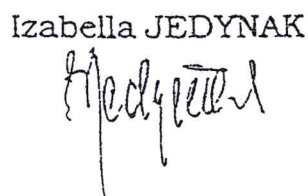 Izabella JEDYNAK